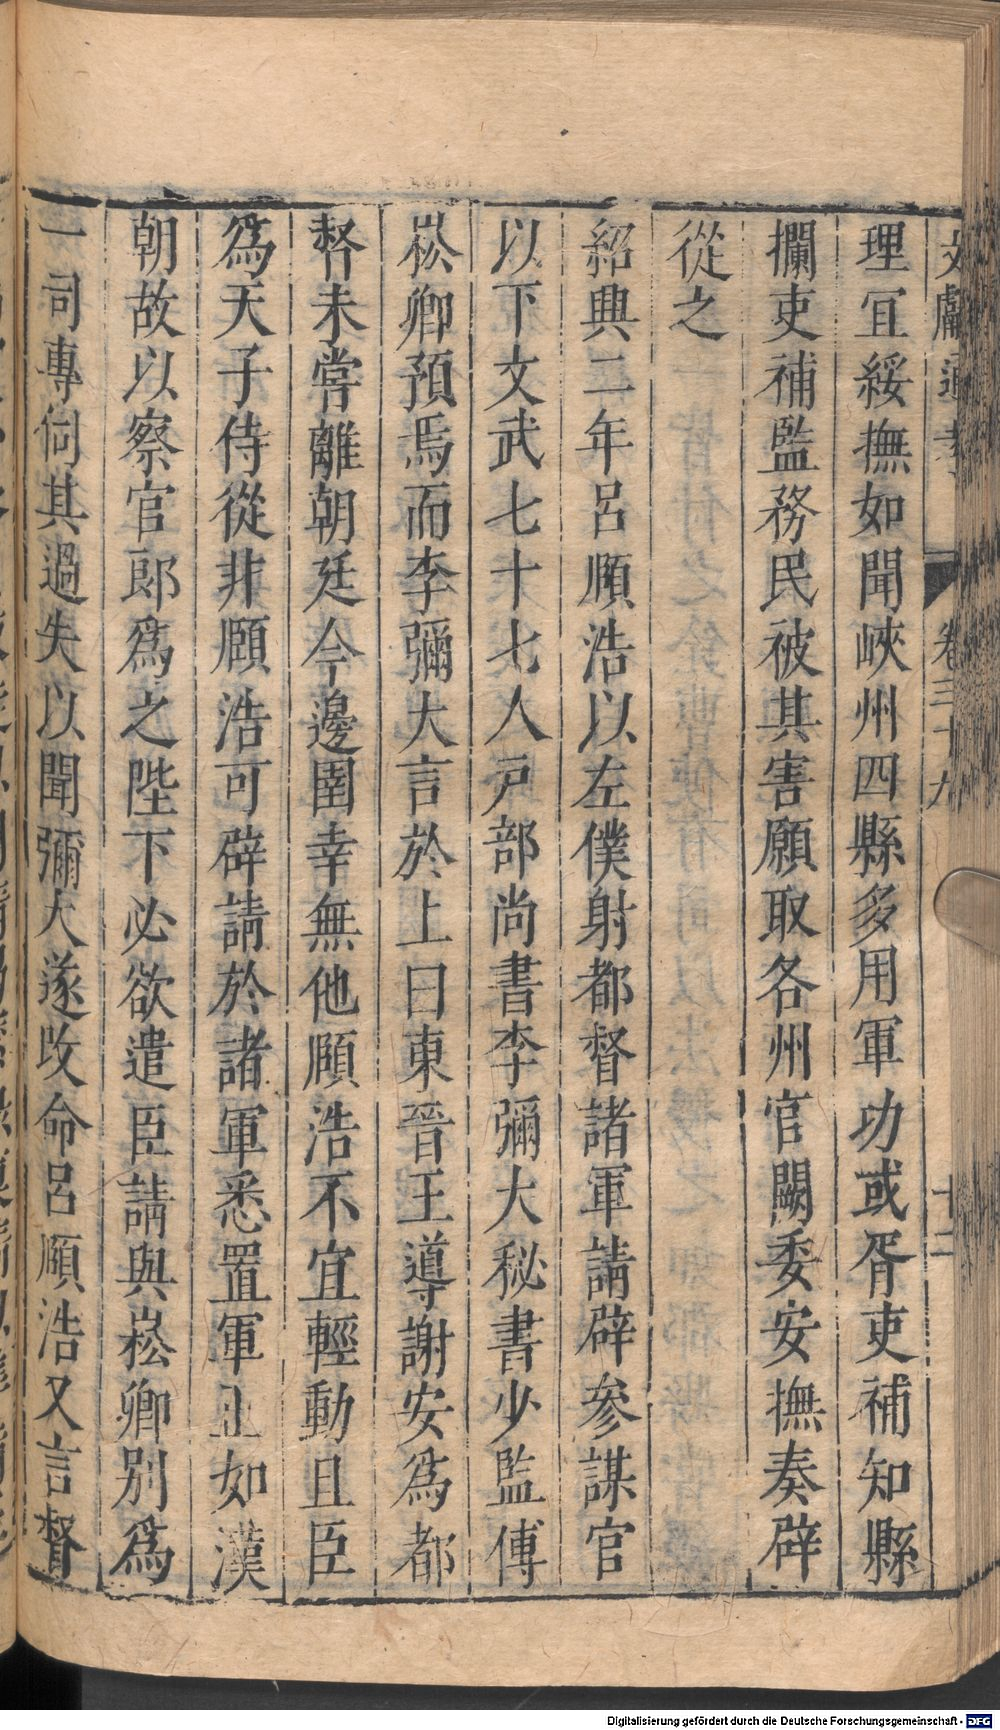 文獻通考 卷三十九 十二
理冝綏撫如聞峽州四縣多用軍功或胥吏補知縣
攔吏補監務民被其害願取各州官闕委安撫奏辟
從之
紹興二年呂頤浩以左僕射都督諸軍請辟參謀官
以下文武七十七人戸部尚書李彌大秘書少監傅
崧卿預焉而李彌大言於上曰東晉王導謝安爲都
督未嘗離朝廷今邊圉幸無他頤浩不宜輕動且臣
爲天子侍從非頤浩可辟請於諸軍悉置軍正如漢
朝故以察官郎爲之陛下必欲遣臣請與崧卿別爲
一司專伺其過失以聞彌大遂改命呂頤浩又言督
Digitalisierung gefördert durch die Deutsche Forschungsgemeinschaft - DFG